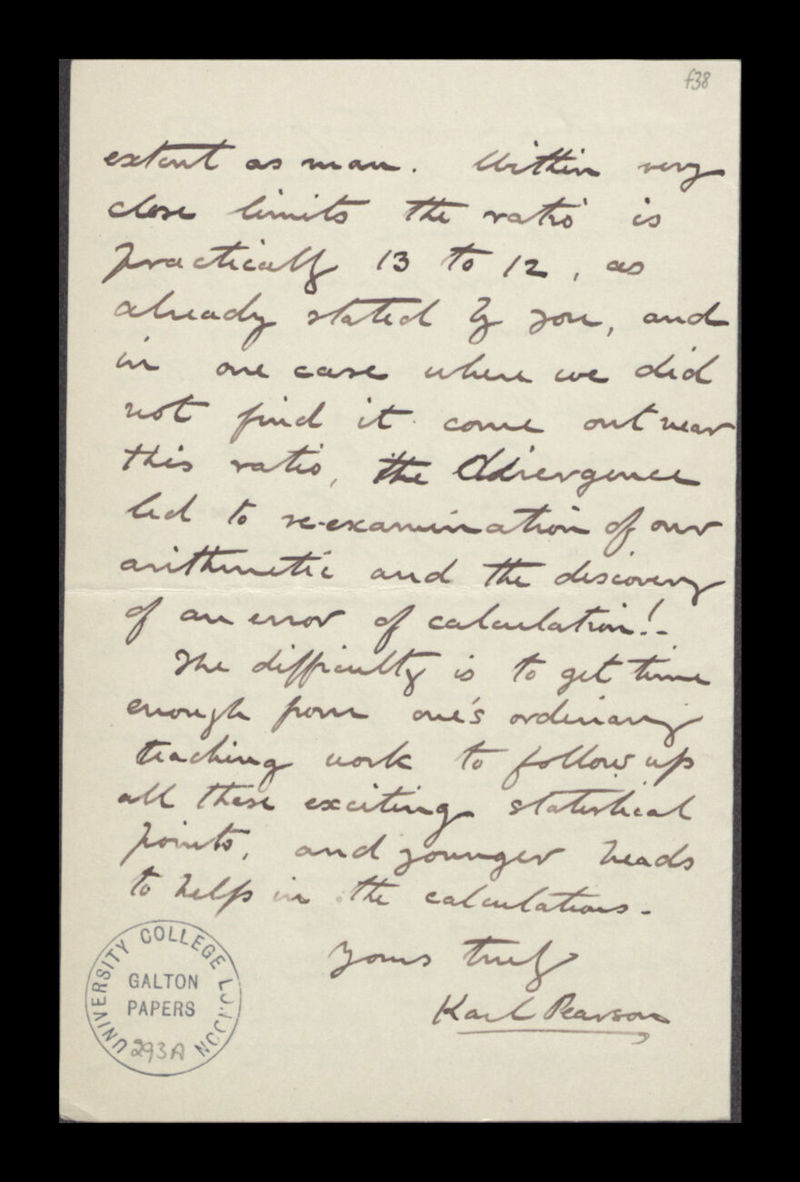 f38
extent as man. Within very
close limits the ratio is
practically 13 to 12, as
already stated by you, and
in one case where we did
not find it come out near
this ratio, the divergence
led to re-examination of our
arithmetic and the discovery
of an error of calculation!-
The difficulty is to get time
enough from one's ordinary
teaching work to follow up
all these exciting statistical
points, and younger heads
to help in the calculations.
Yours truly
Karl Pearson
UNIVERSITY COLLEGE LONDON
GALTON
PAPERS
293A